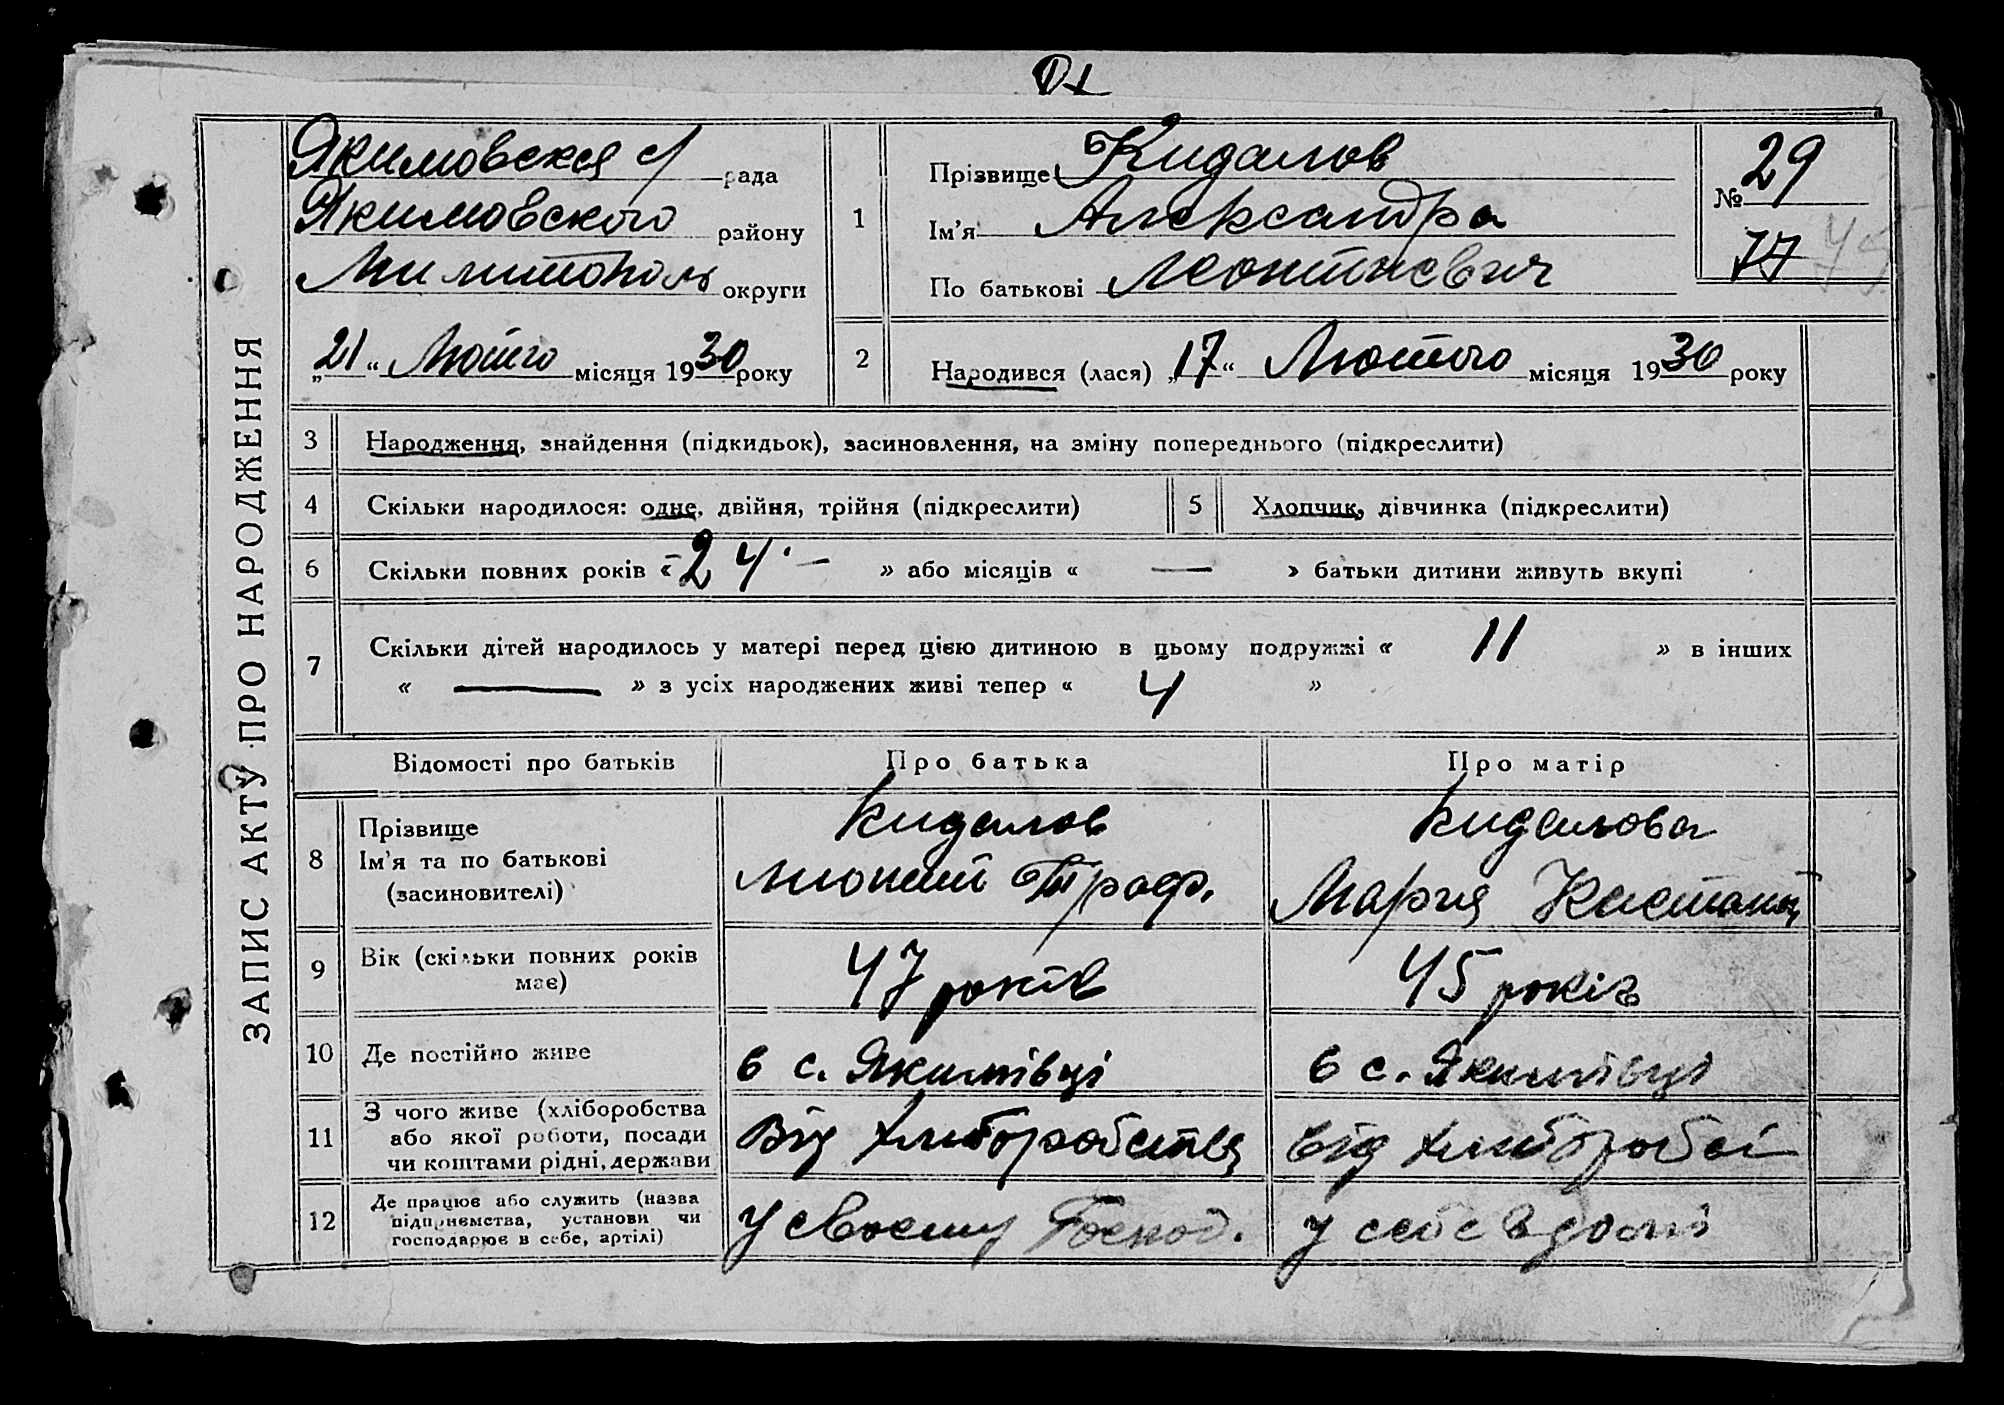 ЗАПИС АКТУ ПРО НАРОДЖЕННЯ
Якимовская с/рада
Якимовского району
Милитополь округи
„21“ Лютого місяця 1930 року
1 Прізвище Кидалов
Ім'я Александра
По батькові Леонтиевич
№ 29
77
2 Народився (лася) „17“ Лютого місяця 1930 року
3 Народження, знайдення (підкидьок), засиновлення, на зміну попереднього (підкреслити)
4 Скільки народилося: одне, двійня, трійня (підкреслити) 5 Хлопчик, дівчинка (підкреслити)
6 Скільки повних років « 24 — » або місяців « — » батьки дитини живуть вкупі
7 Скільки дітей народилось у матері перед цією дитиною в цьому подружжі « 11 » в інших
« — » з усіх народжених живі тепер « 4 »
Відомості про батьків Про батька Про матір
8 Прізвище
Ім'я та по батькові
(засиновителі)
Кидалов
Траф.
Кидалова
Мария
9 Вік (скільки повних років
має)
47 років
45 років
10 Де постійно живе в с. Якимівці в с. Якимівці
11 З чого живе (хліборобства
або якої роботи, посади
чи коштами рідні, держави
Від хліборобства
від
12 Де працює або служить (назва
підприємства, установи чи
господарює в себе, артілі)
у своему Господ.
у себе в домі